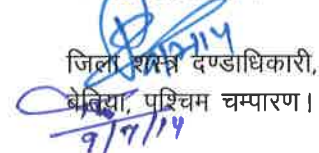 जिला शस्त्र दण्डाधिकारी,
बेतिया, पश्चिम चम्पारण।
9/7/14